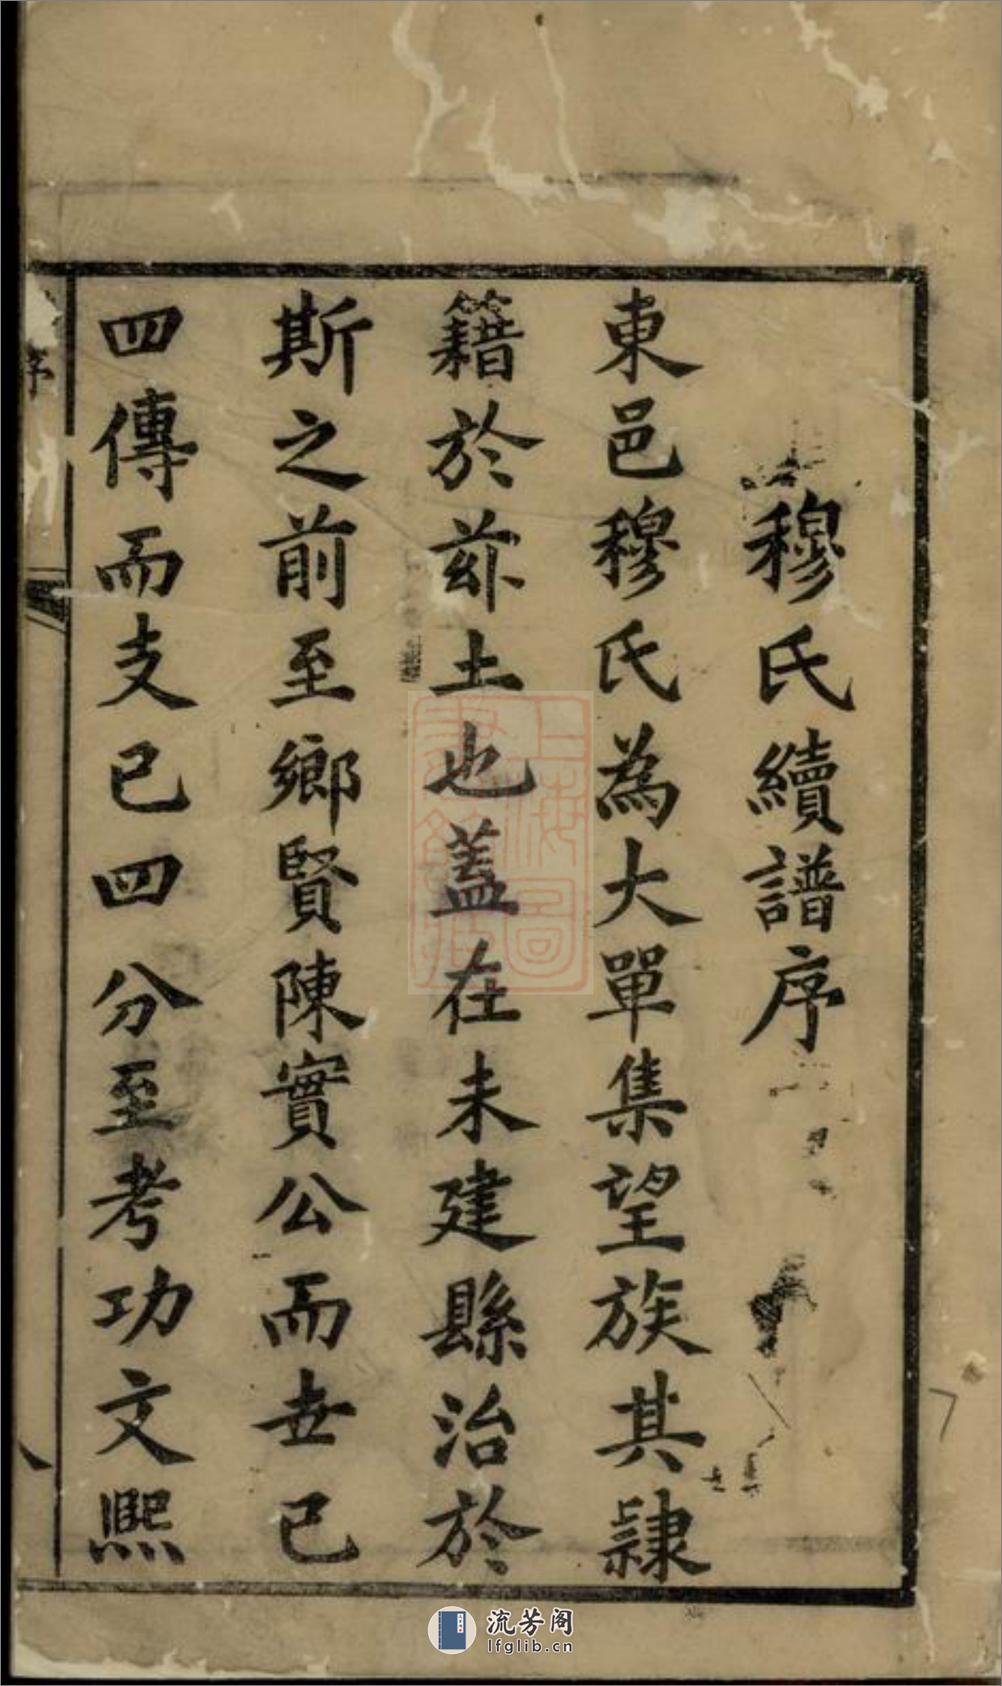 穆氏續譜序
東邑穆氏為大單集望族其隷
籍於茲土也蓋在未建縣治於
斯之前至鄉賢陳實公而世已
四傳而支已四分至考功文熙
序
流芳阁
lfglib.cn